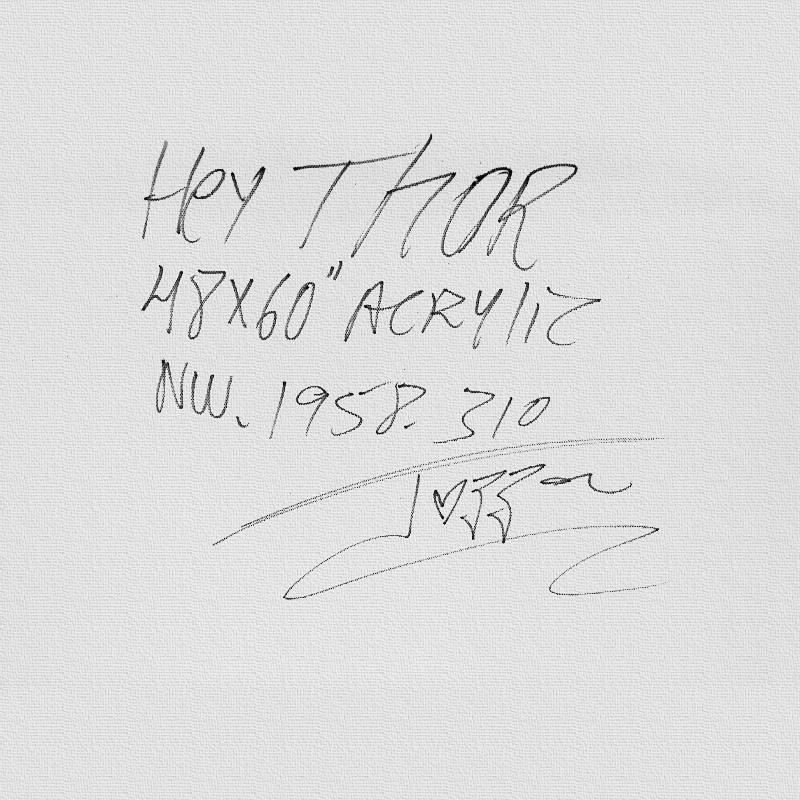 Hey THOR
48X60" ACRYlIC
NW. 1958. 310